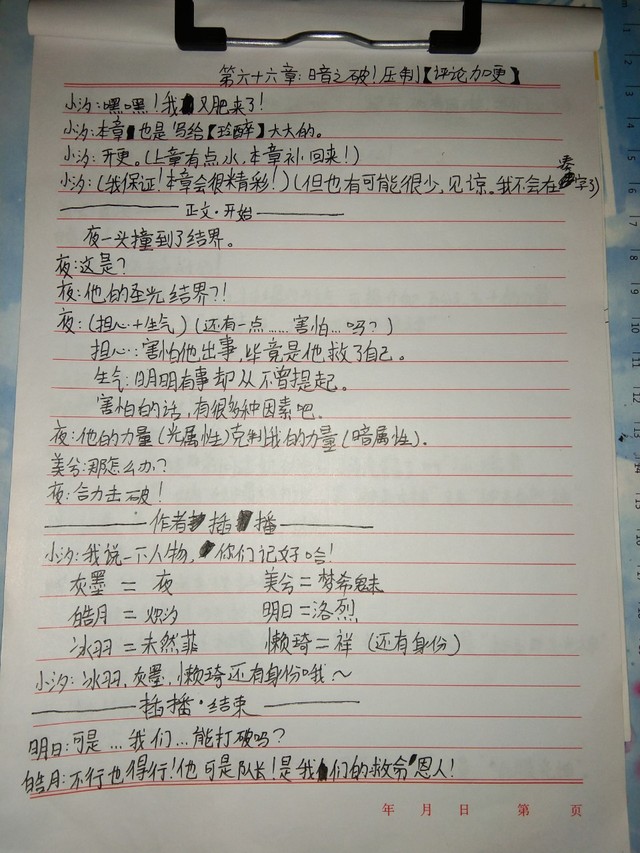 第六十六章:暗之破!压制【评论加更】
小汐:嘿嘿!我又肥来了!
小汐:本章也是写给【玲醉】大大的。
小汐:开更。(上章有点水,本章补回来!)
小汐:(我保证!本章会很精彩!)(但也有可能很少,见谅。我不会在凑字了)
正文·开始
夜一头撞到了结界。
夜:这是?
夜:他的圣光结界?!
夜:(担心+生气)(还有一点……害怕…吗?)
担心:害怕他出事,毕竟是他救了自己。
生气:明明有事却从不曾提起。
害怕的话,有很多种因素吧。
夜:他的力量(光属性)克制我的力量(暗属性)。
美兮:那怎么办?
夜:合力击破!
作者插播
小汐:我说一下人物,你们记好哈!
灰墨=夜 美兮=梦希魅
皓月=炽汐 明日=洛烈
冰羽=未然菲 懒琦=祥(还有身份)
小汐:冰羽,灰墨,懒琦还有身份哦~
插播·结束
明日:可是…我们…能打破吗?
皓月:不行也得行!他可是队长!是我们的救命恩人!
年 月 日 第 页